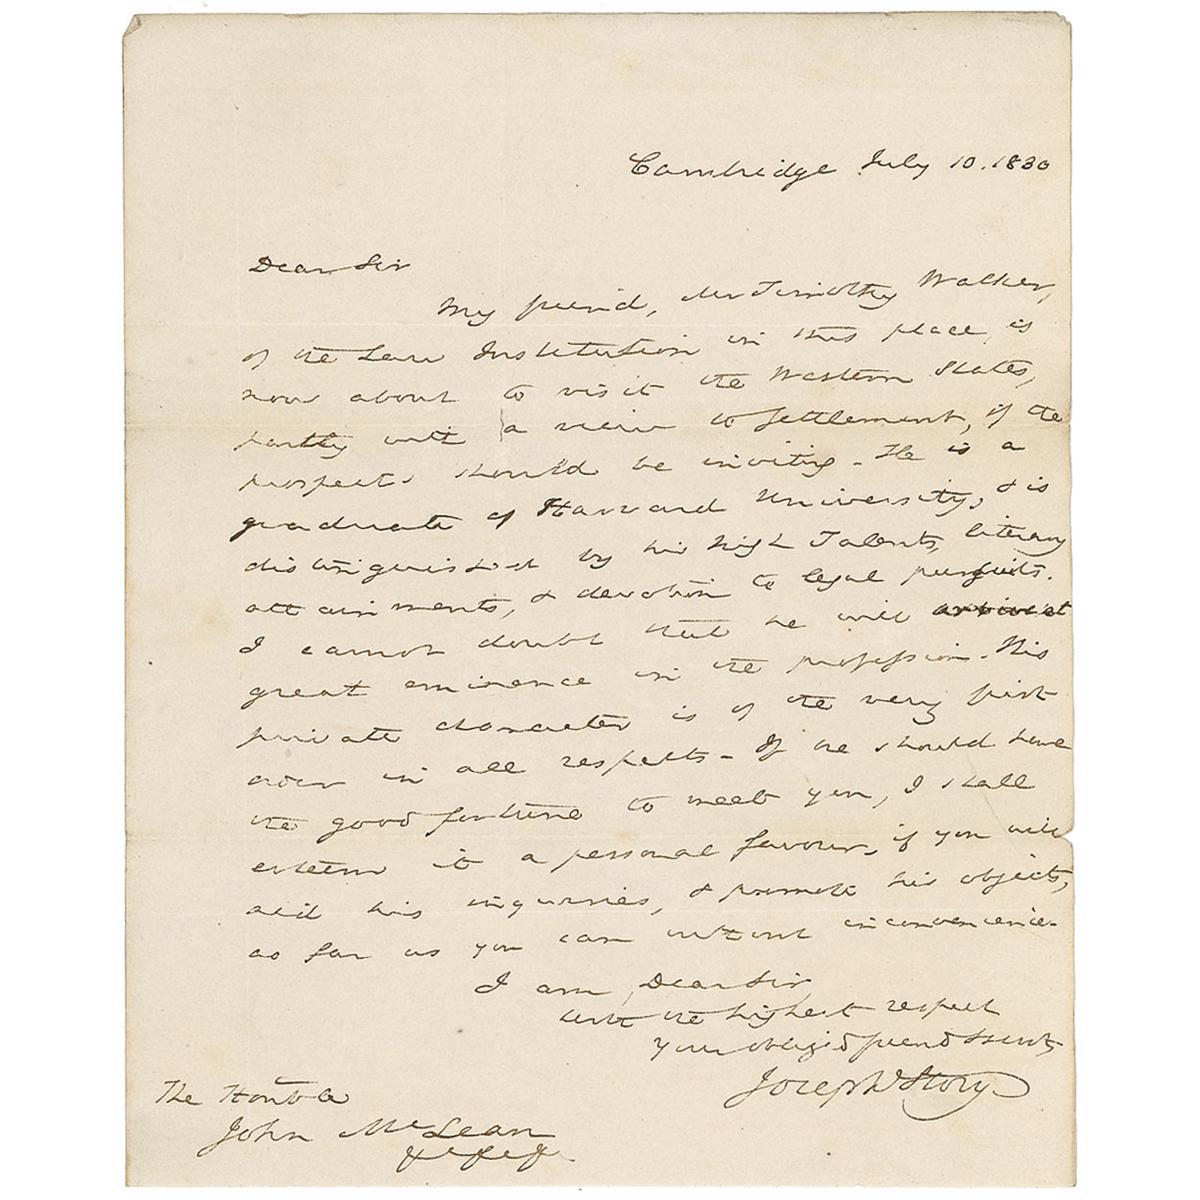 Cambridge July 10. 1830
Dear Sir
My friend, Mr Timothy Walker,
of the Law Institution in this place, is
now about to visit the Western States,
partly with a view to settlement, if the
prospects should be inviting. He is a
graduate of Harvard University, & is
distinguished by his high Talents, literary
attainments, & devotion to legal pursuits.
I cannot doubt that he will arrive at
great eminence in the profession. His
private character is of the very first
order in all respects – If he should have
the good fortune to meet you, I shall
esteem it a personal favour, if you will
aid his inquiries, & promote his objects,
as far as you can without inconvenience.
I am, Dear Sir
with the highest respect
Your obliged friend & servt
Joseph Story
The Honble
John McLean
&c &c &c